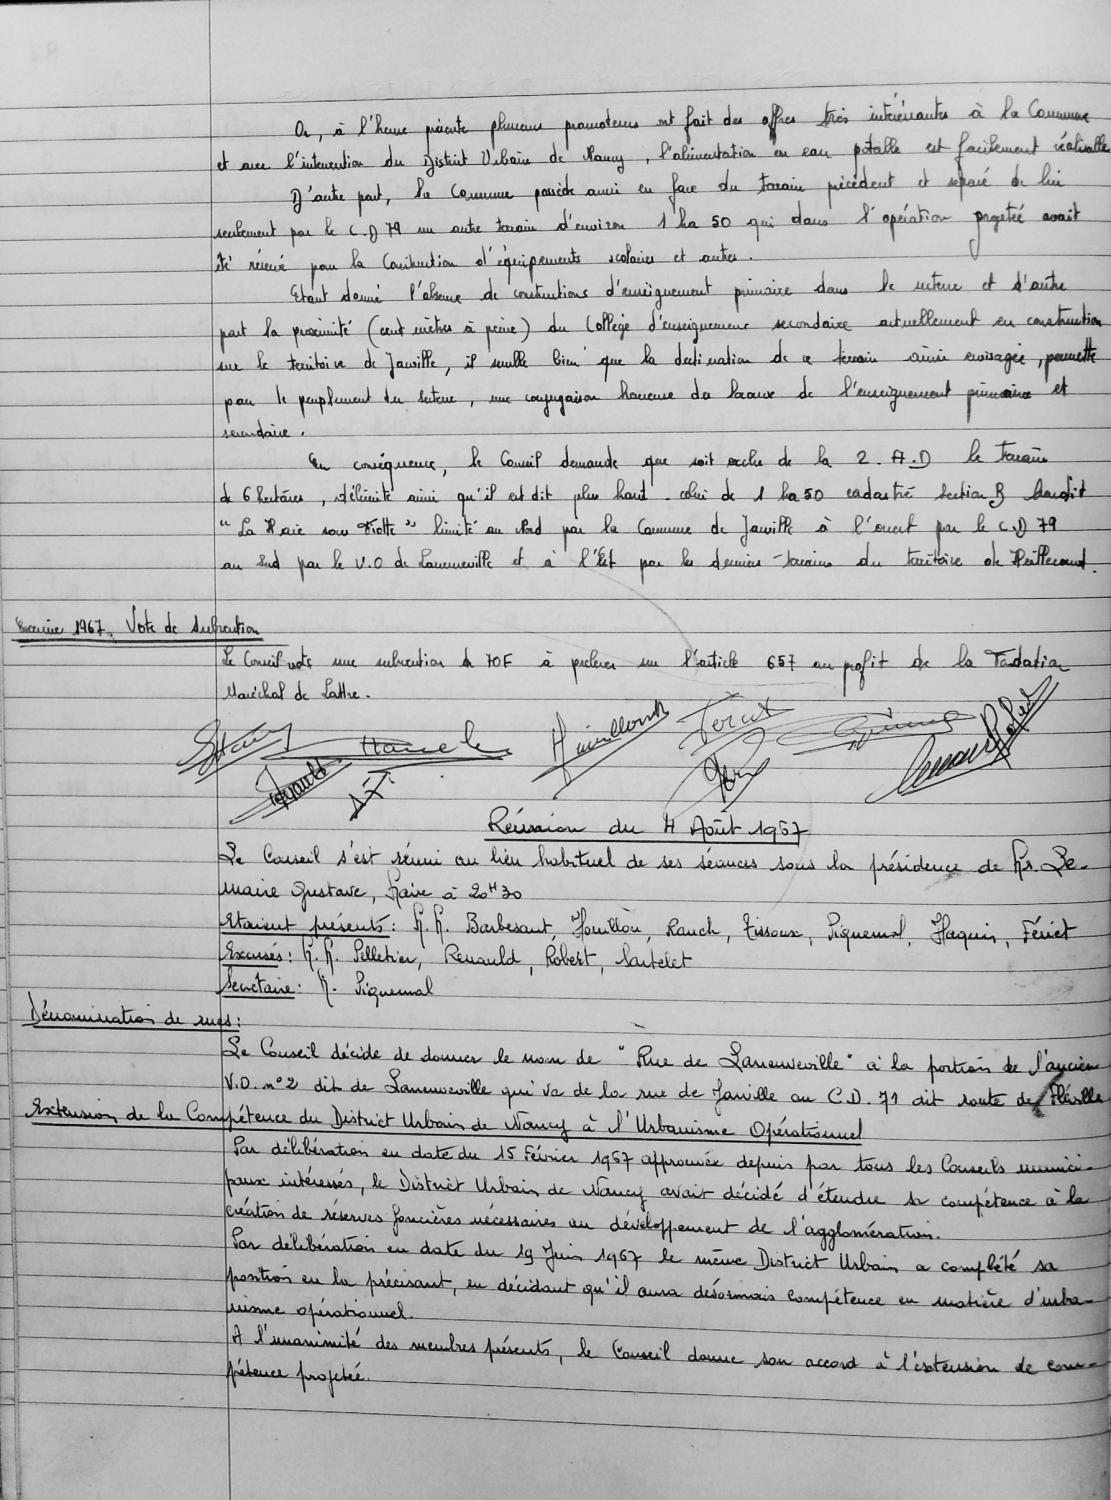 Or, à l'heure présente plusieurs promoteurs ont fait des offres très intéressantes à la Commune
et avec l'intervention du District Urbain de Nancy, l'alimentation en eau potable est facilement réalisable
D'autre part, la Commune possède aussi en face du terrain précédent et séparé de lui
seulement par le C.D 79 un autre terrain d'environ 1 ha 50 qui dans l'opération projetée avait
été réservé pour la Construction d'équipements scolaires et autres.
Etant donné l'absence de constructions d'enseignement primaire dans le secteur et d'autre
part la proximité (cent mètres à peine) du Collège d'enseignement secondaire actuellement en construction
sur le territoire de Jarville, il semble bien que la destination de ce terrain ainsi envisagée, permette
pour le peuplement du secteur, une conjugaison heureuse des locaux de l'enseignement primaire et
secondaire.
En conséquence, le Conseil demande que soit exclu de la Z.A.D le terrain
de 6 hectares, délimité ainsi qu'il est dit plus haut - celui de 1 ha 50 cadastré Section B lieudit
"La Haie sous" limité au Nord par la Commune de Jarville à l'ouest par le C.D 79
au Sud par le V.O de Laneuveville et à l'Est par les derniers terrains du territoire de Heillecourt.
Exercice 1967. Vote de subvention
Le Conseil vote une subvention de 70F à prélever sur l'article 657 au profit de la Fondation
Maréchal de Lattre.
Réunion du 4 Août 1967
Le Conseil s'est réuni au lieu habituel de ses séances sous la présidence de Mr. Le-
maire Gustave, Maire à 20H30
Etaient présents: M.M. Barbesant, Houillon, Rauch, Tissoux, Piquemal, Haquin, Fériet
Excusés: M.M. Pelletier, Renauld, Robert, Sartelet
Secrétaire: M. Piquemal
Dénomination de rues:
Le Conseil décide de donner le nom de "Rue de Laneuveville" à la portion de l'ancien
V.O. n°2 dit de Laneuveville qui va de la rue de Jarville au C.D. 71 dit route de Fléville
Extension de la Compétence du District Urbain de Nancy à l'Urbanisme Opérationnel
Par délibération en date du 15 Février 1967 approuvée depuis par tous les Conseils munici-
paux intéressés, le District Urbain de Nancy avait décidé d'étendre sa compétence à la
création de réserves foncières nécessaires au développement de l'agglomération.
Par délibération en date du 19 Juin 1967 le même District Urbain a complété sa
position en la précisant, en décidant qu'il aura désormais compétence en matière d'urba-
nisme opérationnel.
A l'unanimité des membres présents, le Conseil donne son accord à l'extension de com-
pétence projetée.